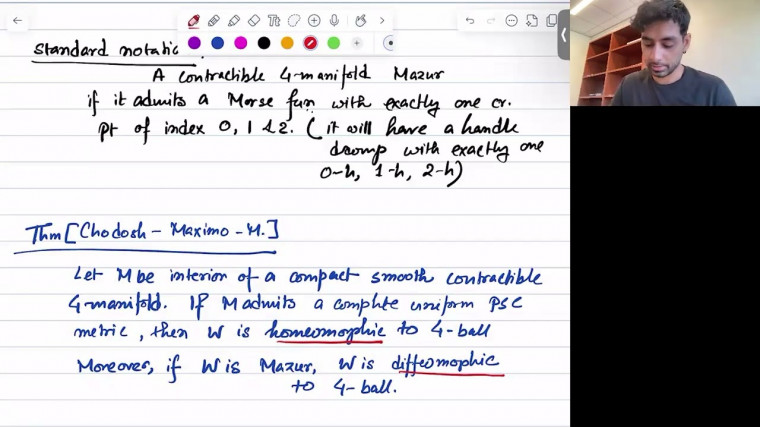 Standard notatio
A contractible 4-manifold Mazur
if it admits a Morse fun with exactly one cr.
pt of index 0, 1 & 2. ( it will have a handle
dcomp with exactly one
0-h, 1-h, 2-h)
Thm [Chodosh - Maximo - M.]
Let M be interior of a compact smooth contractible
4-manifold. If M admits a complete uniform PSC
metric, then W is homeomorphic to 4-ball
Moreover, if W is Mazur, W is diffeomophic
to 4-ball.